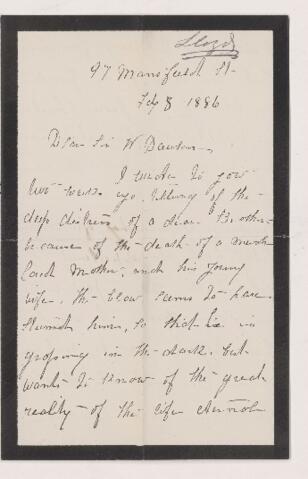 Lloyd
97 Mansfield St.
Feb 8 1886
Dear Sir W Dawson,
I wrote to you
two weeks ago, telling of the
deep distress of a dear Brother
because of the death of a much
loved Mother, and his young
wife. The blow seems to have
stunned him, so that he is
groping in the dark, but
wants to know of the great
reality of the life eternal